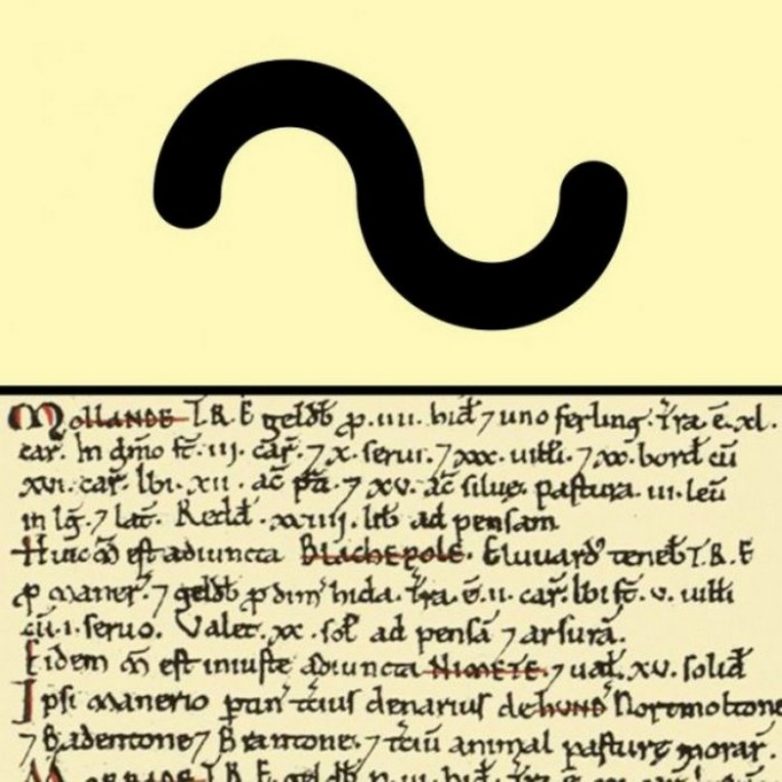 ~
Mollande T.R.E geldb̄ ꝓ .iiii. hid̄ ⁊ uno ferling. Tr̃a. ē .xl.
car̃. In dn̄io st̄ .iij. car̃. ⁊ .x. serui. ⁊ .xxx. uilli. ⁊ .xx. bord̄ cū
xvi. car̃. Ibi .xii. ac̄ p̃ti. ⁊ xv. ac̄ siluę. pastura .iii. leū
in lḡ. ⁊ lat̄. Redd̄ .xxiiij. lib̄ ad pensam
Huic ꝏ̄ est adiuncta Blachepole. Eluuard' teneb̄ T.R.E
ꝓ maner̃. ⁊ geldb̄ ꝓ dim̄ hida. Tr̃a .ē .ii. car̃. Ibi st̄ .v. uilli
cū .i. seruo. Valet .xx. sol̄ ad pensā ⁊ arsurā.
Eidem ꝏ̄ est iniuste adiuncta Nimete. ⁊ ual̄ .xv. solid̄
Ipsi manerio ptin̄ tcius denarius de hund' Nortmoltone
⁊ Badentone ⁊ Brantone. ⁊ tciū animal pasturę morar̄.